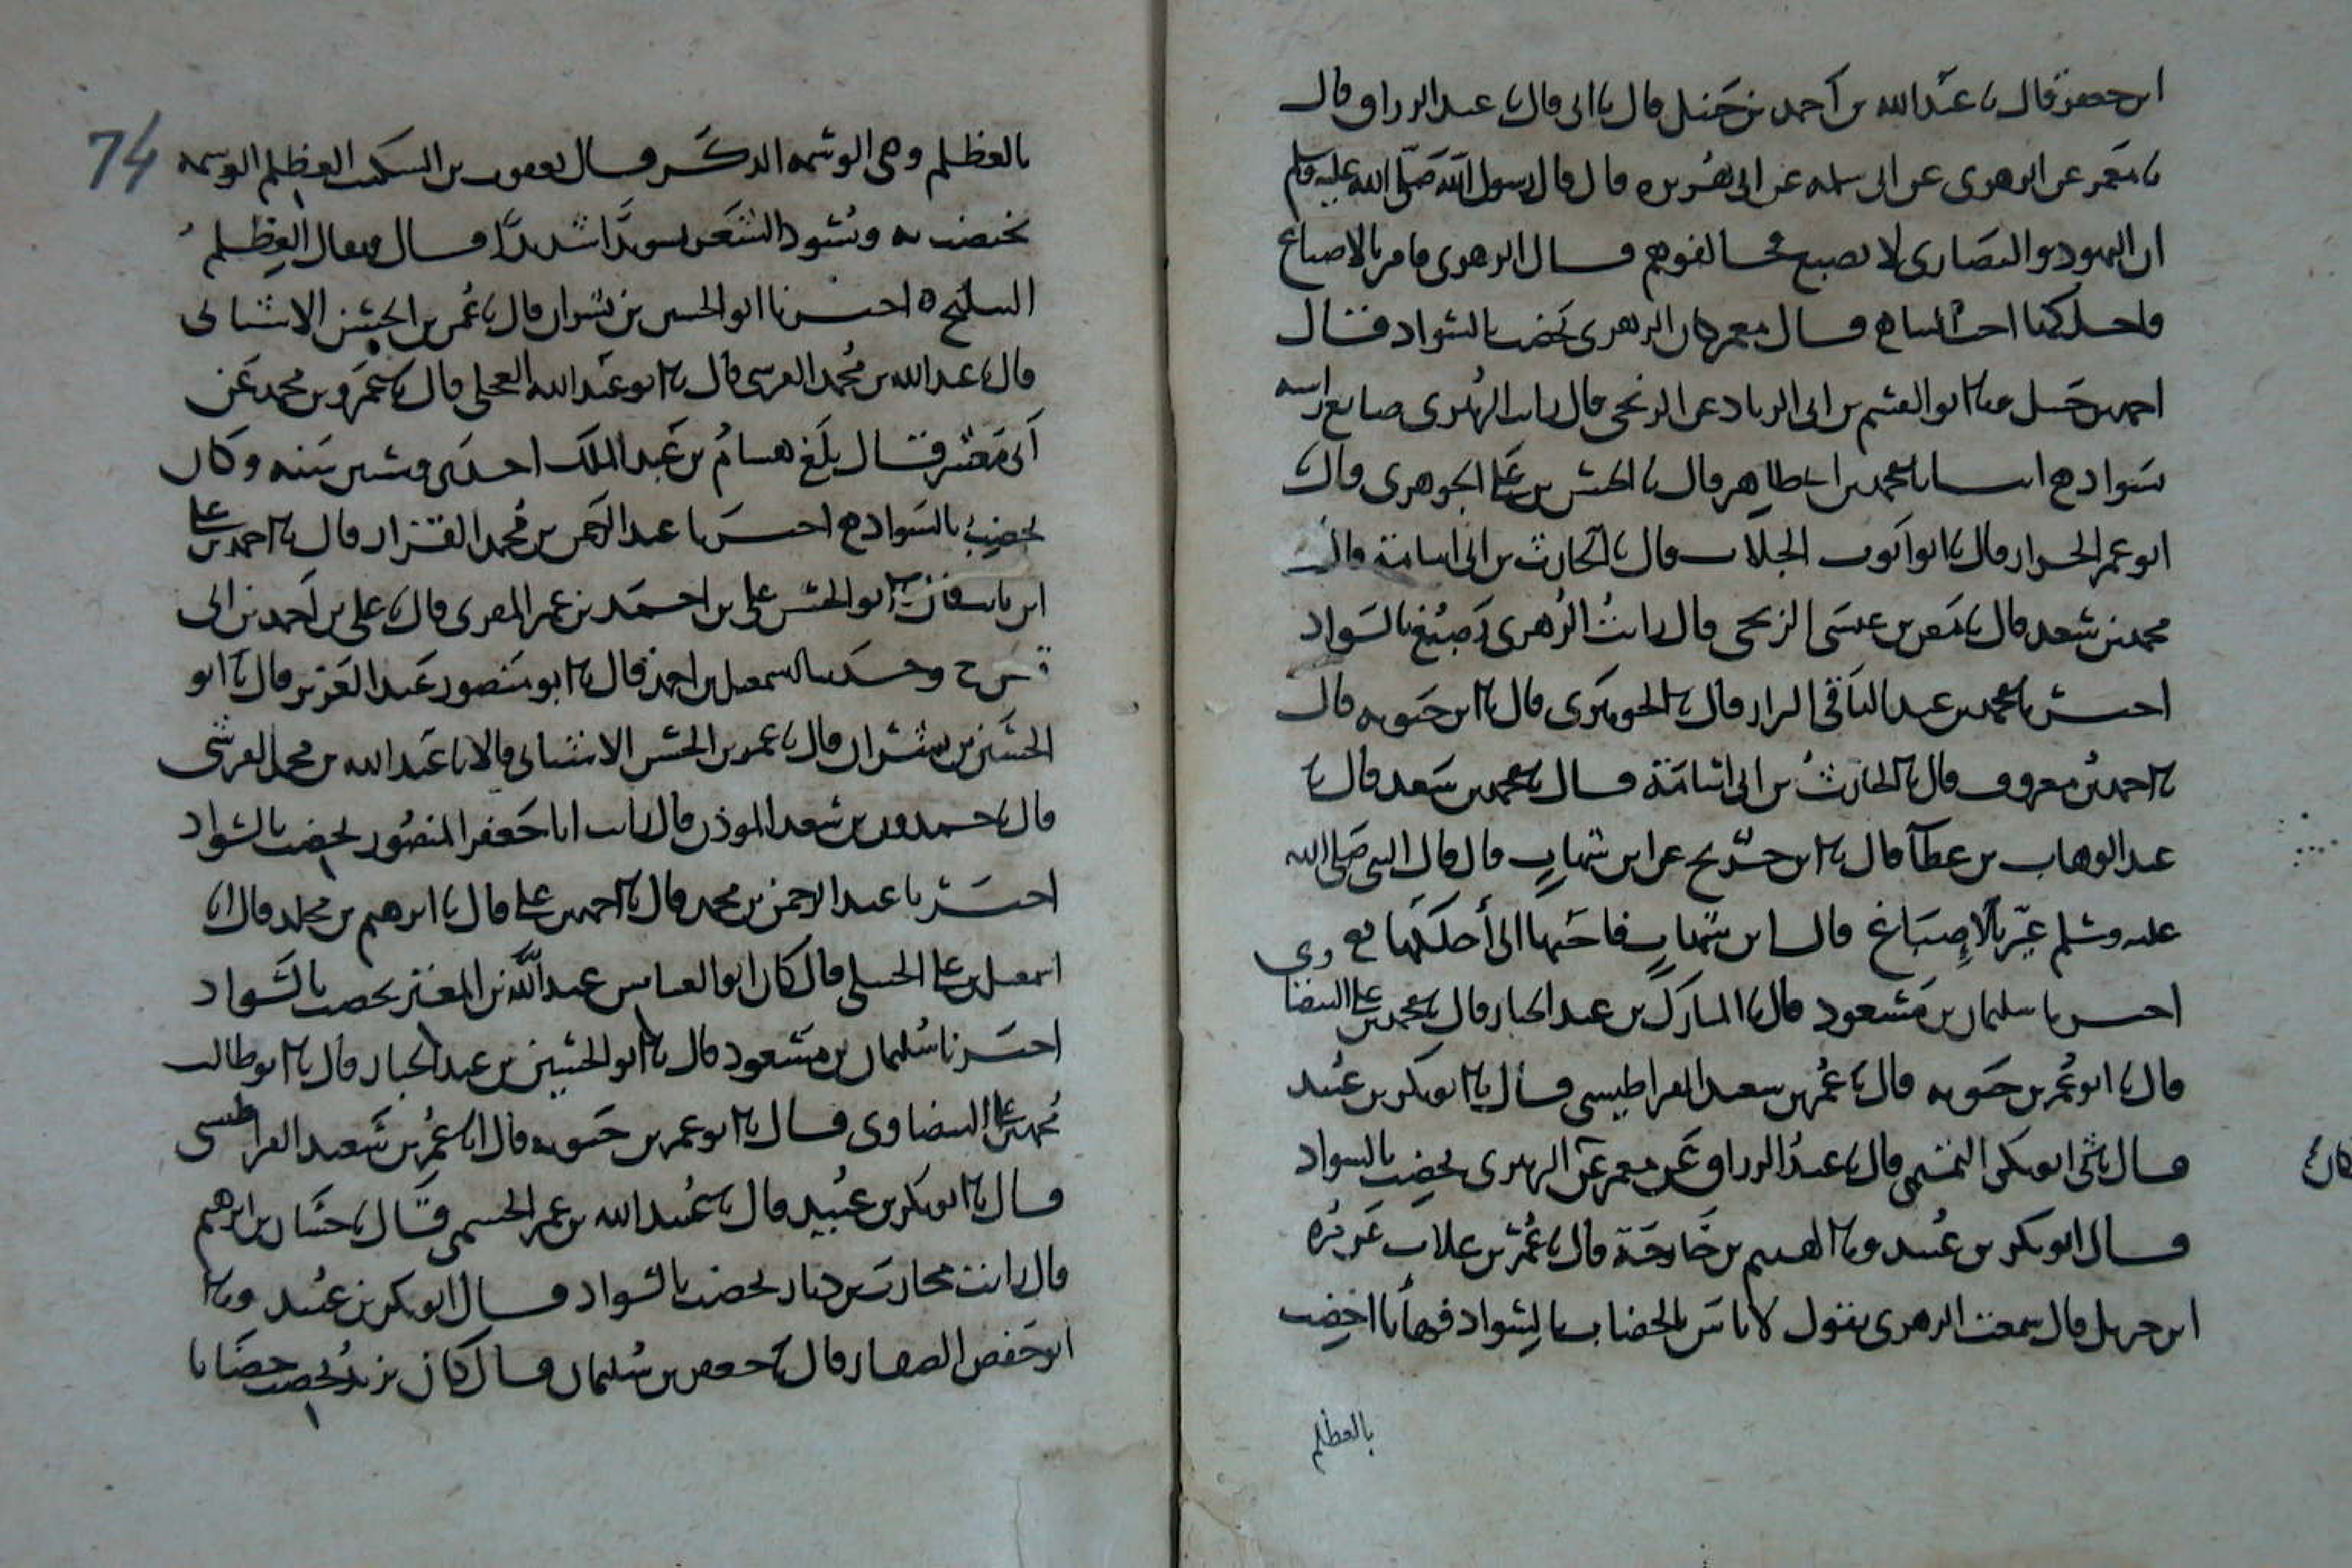 ابن جعفر قال نا عبد الله بن أحمد بن حنبل قال نا ابى قال نا عبد الرزاق قال
نا معمر عن الزهرى عن ابى سلمه عن ابى هريره قال قال رسول الله صلى الله عليه وسلم
ان اليهود والنصارى لا تصبغ فخالفوهم قال الزهرى فامر بالاصباغ
فاحلكها احب الينا قال معمر وكان الزهرى يخضب بالسواد فقال
احمد بن حنبل ونا ابو القسم بن ابى الزناد عن الزنجى قال رايت الزهرى صابغ راسه
بسواد انبانا محمد بن ابى طاهر قال نا الحسن بن على الجوهرى قال نا
ابو عمر الخزاز قال نا ابو ايوب الجلاب قال نا الحارث بن ابى اسامة قال نا
محمد بن سعد قال نا معن بن عيسى الزنجى قال رايت الزهرى يصبغ بالسواد
اخبرنا محمد بن عبد الباقى البزاز قال نا الجوهرى قال نا ابن حيويه قال
نا احمد بن معروف قال نا الحارث بن ابى اسامة قال نا محمد بن سعد قال نا
عبد الوهاب بن عطا قال نا ابن جريج عن ابن شهاب قال قال النبى صلى الله
عليه وسلم غيّر بالاصباغ قال ابن شهاب فاحبها الى أحلكها
اخبرنا سليمان بن مسعود قال نا المبارك بن عبد الجبار قال نا محمد بن على البيضاوى
قال نا ابو عمر بن حيويه قال نا عمر بن سعد القراطيسى قال نا ابو بكر بن عبيد
قال نا ابو بكر التميمى قال نا عبد الرزاق عن معمر عن الزهرى يخضب بالسواد
كان
قال ابو بكر بن عبيد ونا الهيثم بن خارجة قال نا عمر بن علاب عن قره
ابن جريل قال سمعت الزهرى يقول لا باس بالخضاب بالسواد فها انا اخضب
بالعظلم
74
بالعظلم وهى الوسمه الذكر قال يعقوب بن السكيت العظلم الوسمه
يختضب به ويسود الشعر تسويدا شديدا قال ويقال العظلم
اخبرنا ابو الحسين بن بشران قال نا عمر بن الحسن الاشنانى
قال نا عبد الله بن محمد القرشى قال نا ابو عبد الله العجلى قال نا عمرو بن محمد عن
أبى معشر قال بلغ هشام بن عبد الملك احدى وستين سنه وكان
يخضب بالسواد اخبرنا عبد الرحمن بن محمد القزاز قال نا احمد بن على
ابن ثابت قال نا ابو الحسن على بن احمد بن عمر المقرى قال نا على بن أحمد بن ابى
قيس ح وحدثنا اسمعيل بن احمد قال نا ابو منصور عبد العزيز قال نا ابو
الحسين بن بشران قال نا عمر بن الحسن الاشنانى قالا نا عبد الله بن محمد القرشى
قال نا حمدون بن سعد الموذن قال رايت ابا جعفر المنصور يخضب بالسواد
اخبرنا عبد الرحمن بن محمد قال نا احمد بن على قال نا ابرهيم بن مخلد قال انا
اسمعيل بن على قال كان ابو العباس عبد الله بن المعتز يخضب بالسواد
اخبرنا سليمان بن مسعود قال نا ابو الحسين بن عبد الجبار قال نا ابو طالب
محمد بن على البيضاوى قال نا ابو عمر بن حيويه قال انا عمر بن سعد القراطيسى
قال نا ابو بكر بن عبيد قال نا عبيد الله بن عمر الجشمى قال نا حسان بن ابرهيم
قال رايت محارب بن دثار يخضب بالسواد قال ابو بكر بن عبيد ونا
ابو حفص الصفار قال نا جعفر بن سليمان قال كان يزيد يخضب خضابا